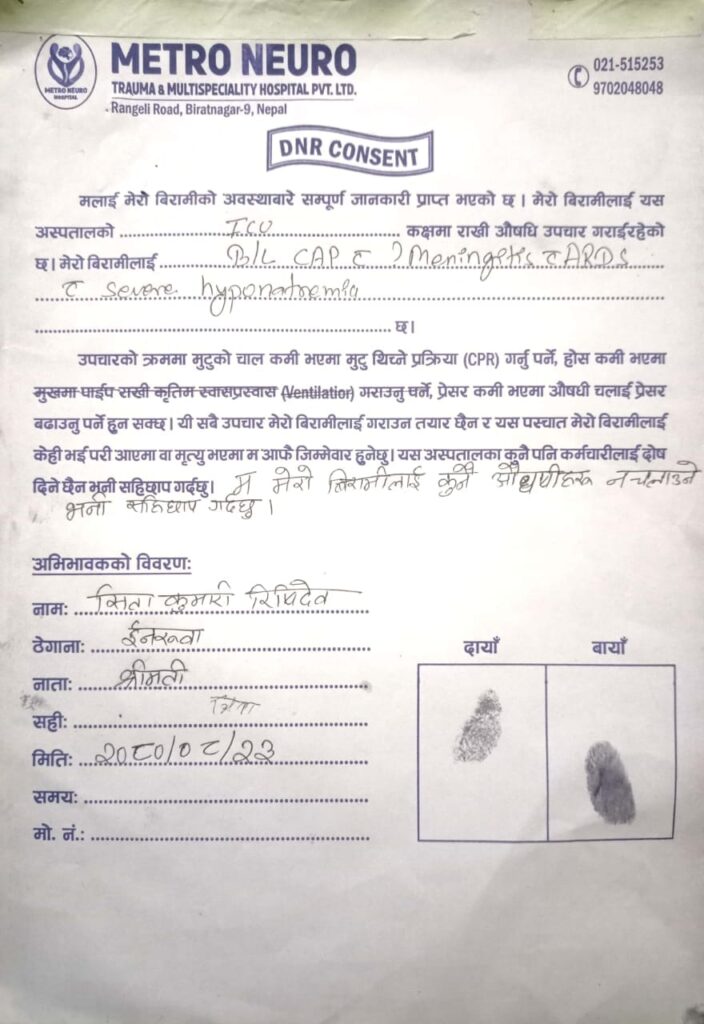 METRO NEURO
HOSPITAL
METRO NEURO
TRAUMA & MULTISPECIALITY HOSPITAL PVT. LTD.
Rangeli Road, Biratnagar-9, Nepal
021-515253
9702048048
DNR CONSENT
मलाई मेरो बिरामीको अवस्थाबारे सम्पूर्ण जानकारी प्राप्त भएको छ । मेरो बिरामीलाई यस
अस्पतालको ICU कक्षमा राखी औषधि उपचार गराईरहेको
छ। मेरो बिरामीलाई B/L CAP c̄ ? Meningitis c̄ ARDS
c̄ severe hyponatremia
छ।
उपचारको क्रममा मुटुको चाल कमी भएमा मुटु थिच्ने प्रक्रिया (CPR) गर्नु पर्ने, होस कमी भएमा
मुखमा पाईप राखी कृतिम स्वासप्रस्वास (Ventilatior) गराउनु पर्ने, प्रेसर कमी भएमा औषधी चलाई प्रेसर
बढाउनु पर्ने हुन सक्छ। यी सबै उपचार मेरो बिरामीलाई गराउन तयार छैन र यस पस्चात मेरो बिरामीलाई
केही भई परी आएमा वा मृत्यु भएमा म आफै जिम्मेवार हुनेछु। यस अस्पतालका कुनै पनि कर्मचारीलाई दोष
दिने छैन भनी सहिछाप गर्दछु। म मेरो बिरामीलाई कुनै औषधीहरू नचलाउने
भनी सहिछाप गर्दछु।
अभिभावकको विवरण:
नाम: सिता कुमारी रिषिदेव
ठेगाना: ईनरूवा
नाता: श्रीमती
सही: सिता
मिति: २०८०/०८/२३
समय:
मो. नं.:
दायाँ बायाँ